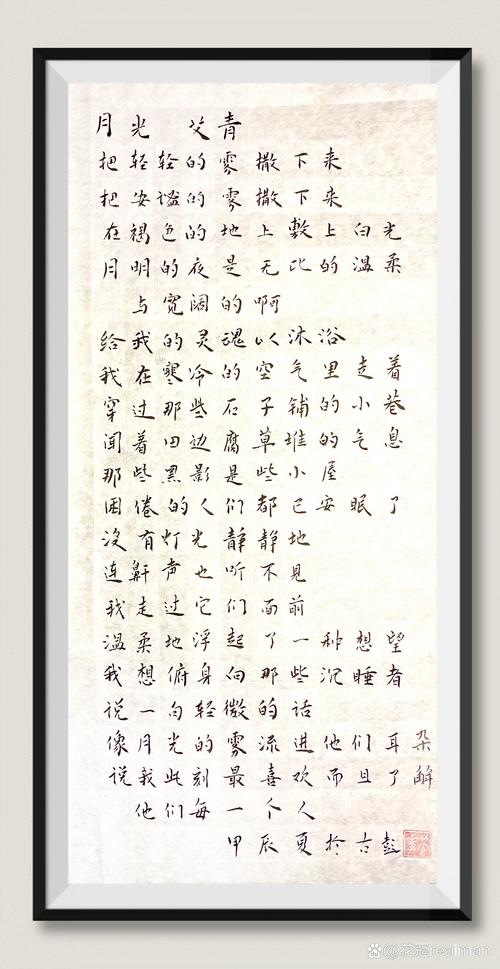 月光 艾青
把轻轻的雾撒下来
把安谧的雾撒下来
在褐色的地上敷上白光
月明的夜是无比的温柔
与宽阔的啊
给我的灵魂以沐浴
我在寒冷的空气里走着
穿过那些石子铺的小巷
闻着田边腐草堆的气息
那些黑影是些小屋
困倦的人们都已安眠了
没有灯光静静地
连鼾声也听不见
我走过它们面前
温柔地浮起了一种想望
我想俯身向那些沉睡者
说一句轻微的话
像月光的雾流进他们耳朵
说我此刻最喜欢而且了解
他们每一个人
甲辰夏于古彭
@花冠realman